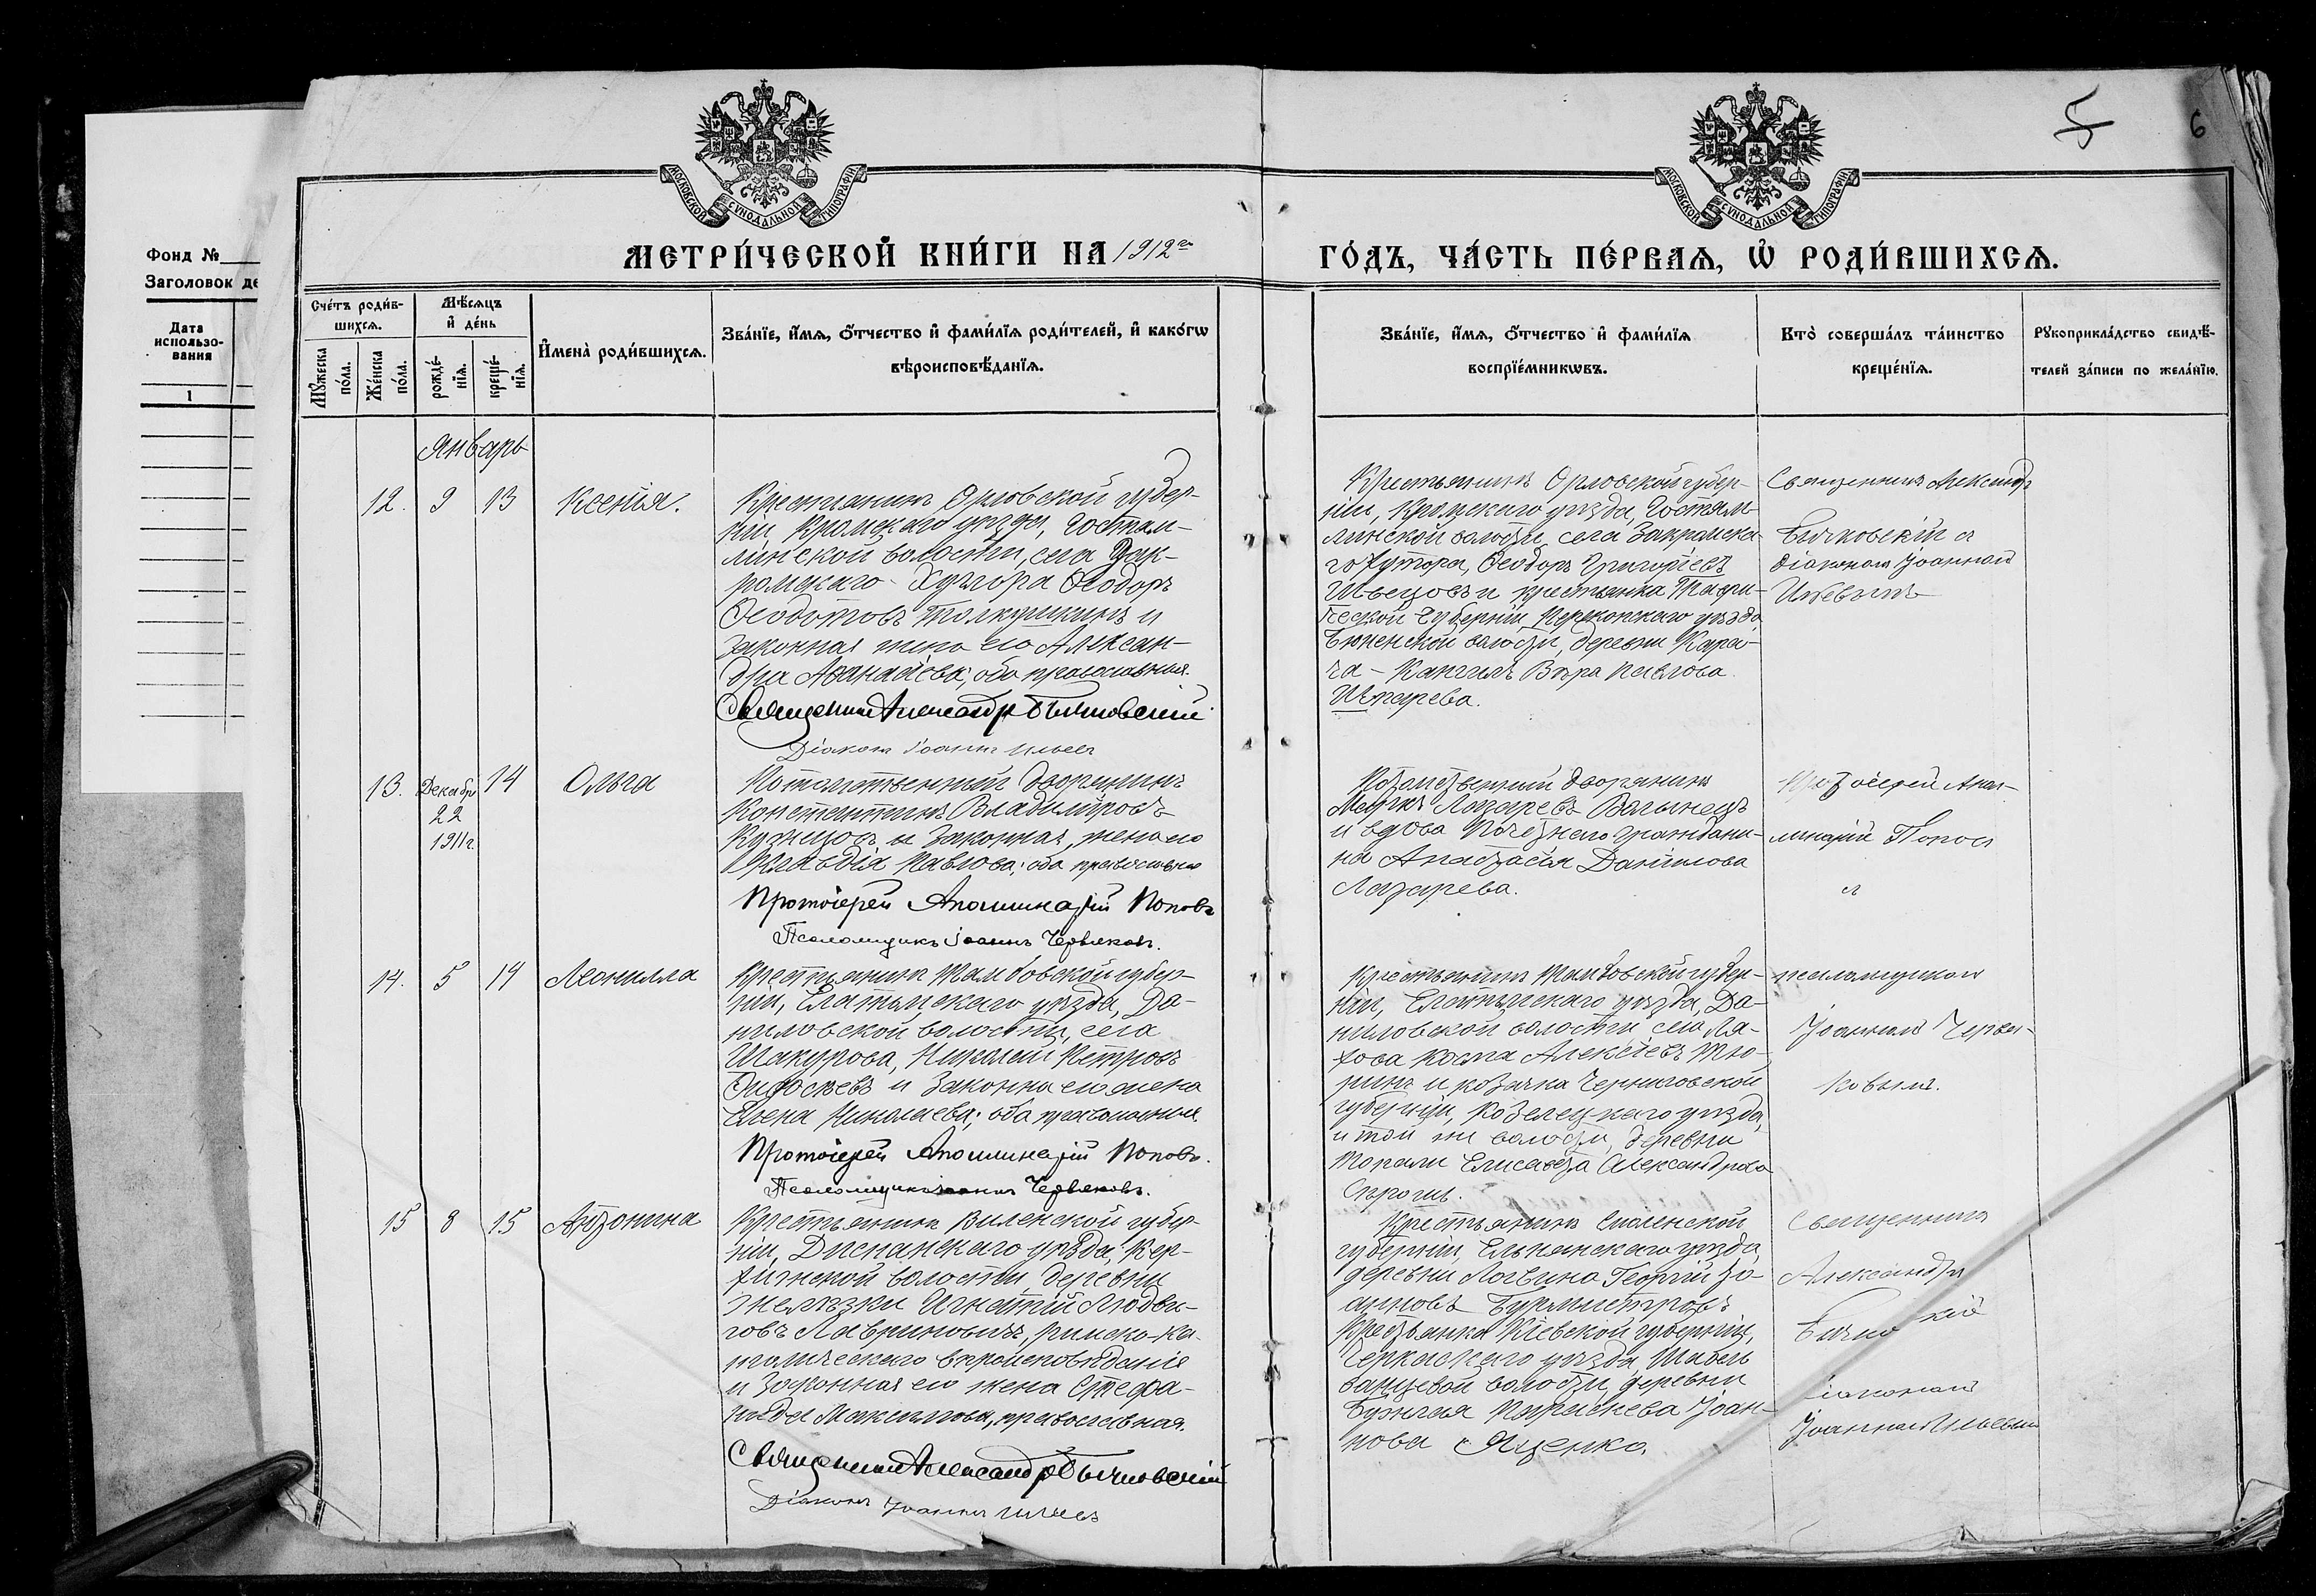 Фонд №
Заголовок де
Дата
использо-
вания
1
МОСКОВСКОЙ СѴНОДАЛЬНОЙ ТИПОГРАФІИ
МОСКОВСКОЙ СѴНОДАЛЬНОЙ ТИПОГРАФІИ
5
6
МЕТРИ́ЧЕСКОЙ КНИ́ГИ НА 1912 го
ГО́ДЪ, ЧА́СТЬ ПЕ́РВАЯ, Ѡ҆ РОДИ́ВШИХСЯ.
Сче́тъ роди́в-
шихся.
Мѣ́сяцъ
и҆ де́нь
Мꙋ́жеска
по́ла.
Же́нска
по́ла.
рожде́-
нїя.
креще́-
нїя.
И҆мена̀ роди́вшихся.
Зва́нїе, и҆́мя, ѻ҆́тчество и҆ фами́лїя роди́телей, и҆ како́гѡ
вѣроисповѣ́данїя.
Зва́нїе, и҆́мя, ѻ҆́тчество и҆ фами́лїя
воспрїе́мникѡвъ.
Кто̀ соверша́лъ та́инство
креще́нїя.
Рꙋкоприкла́дство свидѣ́-
телей за́писи по жела́нїю.
Январь
12.
9
13
Ксенія.
Крестьянинъ Орловской губер-
ніи, Кромскаго уѣзда, Гостом-
линской волости, села Зак-
ромскаго Хутора Ѳеодоръ
Ѳеодотовъ Толкушкинъ и
законная жена его Алексан-
дра Аѳанасіева; оба православныя.
Священникъ Александръ Бычковскій
Діаконъ Іоаннъ Ильевъ
Крестьянинъ Орловской губер-
ніи, Кромскаго уѣзда, Гостом-
линской волости, села Закромска-
го Хутора, Ѳеодоръ Григоріевъ
Швецовъ и крестьянка Таври-
ческой Губерніи, уѣзда,
волости, деревни Кара-
ча - Кангилъ Вѣра Павлова
Священникъ Александръ
Бычковскій съ
діакономъ Іоанномъ
Ильевымъ
13.
Декабря
22
1911 г.
14
Ольга
Потомственный дворянинъ
Константинъ Владиміровъ
Кузнецовъ и законная жена его
Клавдія Павлова; оба православные
Протоіерей Аполлинарій Поповъ
Псаломщикъ Іоаннъ Червяковъ.
Потомственный дворянинъ
Лазаревъ
и вдова Почетнаго гражданина-
на Анастасія Даніилова
Лазарева.
Протоіерей Апол-
линарій Поповъ
съ
14.
5
14
Леонилла
Крестьянинъ Тамбовской губер-
ніи, Елатомскаго уѣзда, Да-
ниловской волости, села
Шакурова, Николай Петровъ
и законная его жена
Елена Николаева; оба православные.
Протоіерей Аполлинарій Поповъ.
Псаломщикъ Іоаннъ Червяковъ.
Крестьянинъ Тамбовской губер-
ніи, Елатомскаго уѣзда, Да-
ниловской волости, села
Косма Алексіевъ Тю-
ринъ и козачка Черниговской
губерніи, Козелецкаго уѣзда,
и той же волости, деревни
Елисавета Александрова
псаломщикомъ
Іоанномъ Червя-
ковымъ.
15
8
15
Антонина
Крестьянинъ Виленской губер-
ніи, Диснянскаго уѣзда,
волости, деревни
Игнатій Людви-
говъ Лавриновичъ, римско-ка-
толическаго вѣроисповѣданія
и законная его жена Стефа-
нида Максимова, православная.
Священникъ Александръ Бычковскій
Діаконъ Іоаннъ Ильевъ
Крестьянинъ Смоленской
губерніи, Ельнинскаго уѣзда,
деревни Логвина Георгій Іо-
анновъ Бурмистровъ
Крестьянка Кіевской губерніи,
Черкаскаго уѣзда,
волости, деревни
Параскева Іоан-
нова Яценко.
Священникъ
Александръ
діакономъ
Іоанномъ Ильевымъ